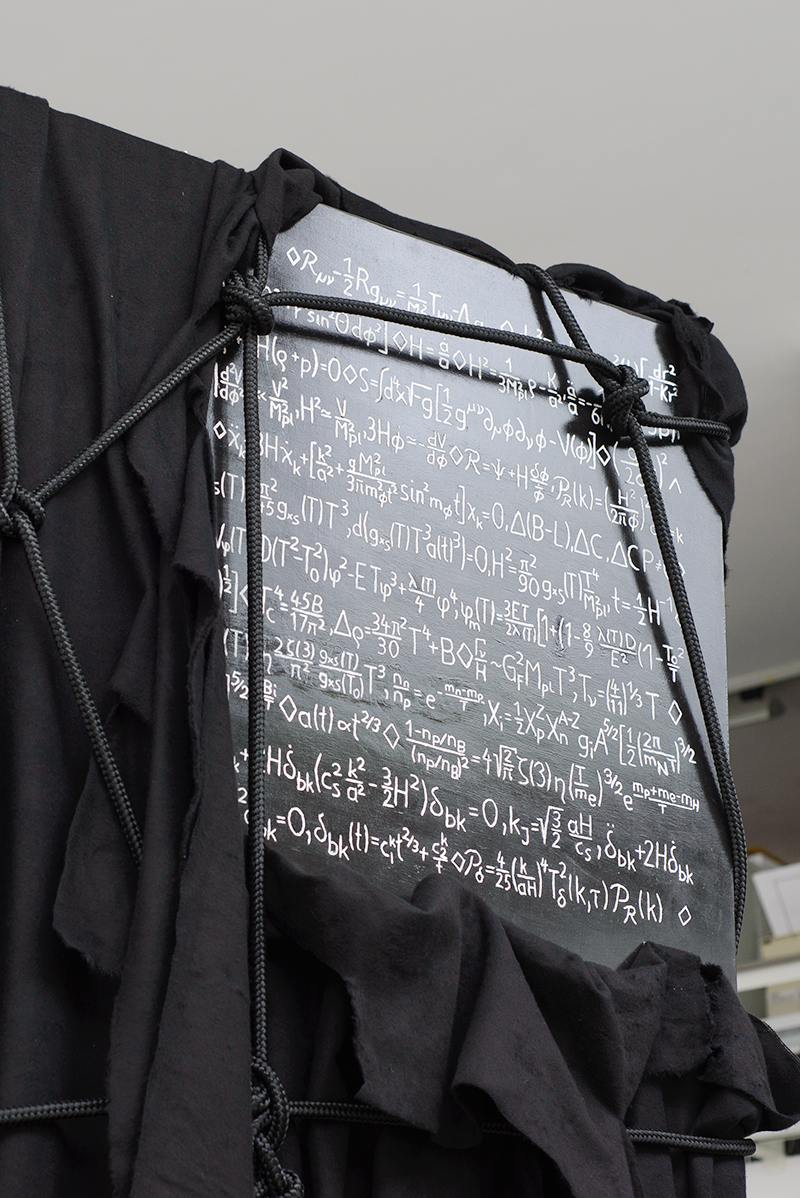 ◇R_μν-1/2Rg_μν=1/M²T_μν-Λg
r²sin²Θdφ²]◇H=ȧ/a◇H²=1/3M²_pl ρ-K/a², ä/a=-1/6 √[dr²/1-Kr²
H(ρ+p)=0◇S=∫d⁴x√-g[1/2g^μν∂_μφ∂_νφ-V(φ)]◇
d²V/dφ²≪V²/M²_pl, H²=V/M²_pl, 3Hφ̇=-dV/dφ◇R=Ψ+Hδφ/φ̇, P_R(k)=(H²/2πφ̇)² ∧
◇ẍ_k 3Hẋ_k+[k²/a²+gM²_pl/3πm²_φt²sin²m_φt]x_k=0,Δ(B-L),ΔC,ΔCP≠
s(T) π²/45g_*s(T)T³,d(g_*s(T)T³a(t)³)=0,H²=π²/90g_*s(T)T⁴/M²_pl, t=1/2H⁻¹
V_φ(T) D(T²-T₀²)φ²-ETφ³+λ(T)/4φ⁴;φ_m(T)=3ET/2λ(T)[1+(1-8/9 λ(T)D/E²(1-T₀²/T
)^1/2]◇T_c⁴=45B/17π²,Δρ=34π²/30T⁴+B◇Γ_ν/H~G_F²M_plT³,T_ν=(4/11)^1/3T ◇
(T) η 2ζ(3)/π² g_*s(T)/g_*s(T₀)T³,n_n/n_p=e^-m_n-m_p/T,X_i=1/2X_p^ZX_n^A-Z g_iA^5/2[1/2(2π/m_NT)^3/2
)^5/2 Bi/T◇a(t)∝t^2/3◇1-n_p/n_B/(n_p/n_B)²=4√2/π ζ(3)η(T/m_e)^3/2e^m_p+m_e-m_H/T
2Hδ̇_bk(c_s²k²/a²-3/2H²)δ_bk=0,k_J=√3/2 aH/c_s,δ̈_bk+2Hδ̇_bk
_bk=0,δ_bk(t)=c₁^k t^2/3+c₂^k/t◇P_δ=4/25(k/aH)⁴T_δ²(k,τ)P_R(k) ◇